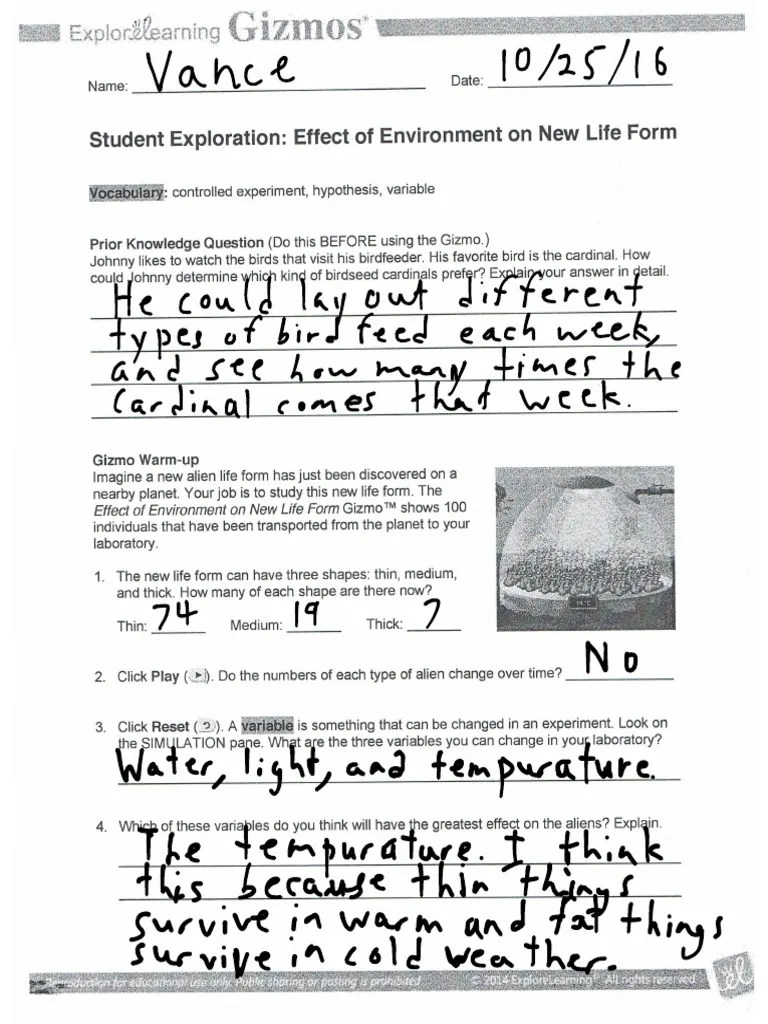 ExploreLearning Gizmos®
Name: Vance Date: 10/25/16
Student Exploration: Effect of Environment on New Life Form
Vocabulary: controlled experiment, hypothesis, variable
Prior Knowledge Question (Do this BEFORE using the Gizmo.)
Johnny likes to watch the birds that visit his birdfeeder. His favorite bird is the cardinal. How
could Johnny determine which kind of birdseed cardinals prefer? Explain your answer in detail.
He could lay out different
types of bird feed each week,
and see how many times the
Cardinal comes that week.
Gizmo Warm-up
Imagine a new alien life form has just been discovered on a
nearby planet. Your job is to study this new life form. The
Effect of Environment on New Life Form Gizmo™ shows 100
individuals that have been transported from the planet to your
laboratory.
1. The new life form can have three shapes: thin, medium,
and thick. How many of each shape are there now?
Thin: 74 Medium: 19 Thick: 7
2. Click Play ( ). Do the numbers of each type of alien change over time? No
3. Click Reset ( ). A variable is something that can be changed in an experiment. Look on
the SIMULATION pane. What are the three variables you can change in your laboratory?
Water, light, and tempurature.
4. Which of these variables do you think will have the greatest effect on the aliens? Explain.
The tempurature. I think
this because thin things
survive in warm and fat things
survive in cold weather.
Reproduction for educational use only. Public sharing or posting is prohibited © 2014 ExploreLearning® All rights reserved